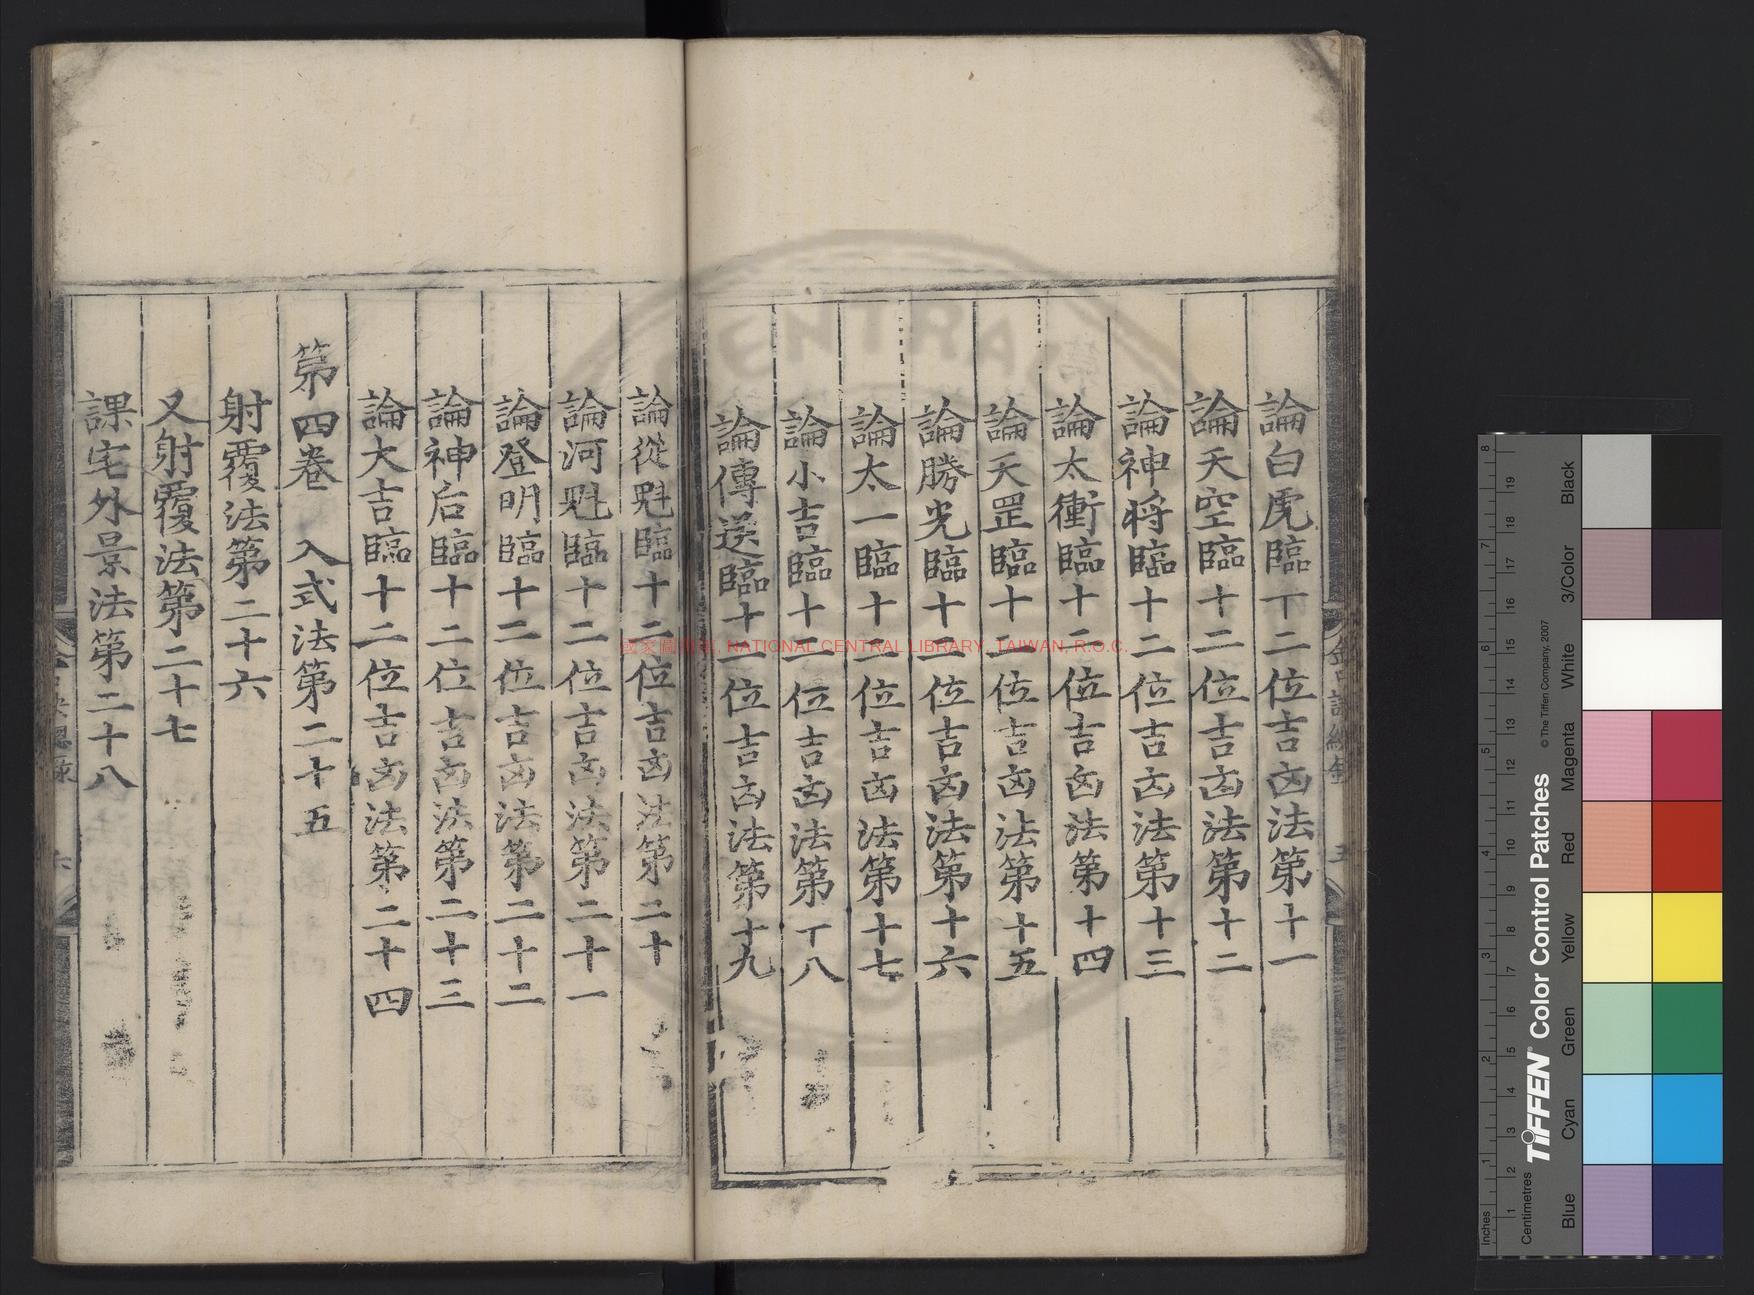 論白虎臨十二位吉凶法第十一
論天空臨十二位吉凶法第十二
論神将臨十二位吉凶法第十三
論太衝臨十二位吉凶法第十四
論天罡臨十二位吉凶法第十五
論勝光臨十二位吉凶法第十六
論太一臨十二位吉凶法第十七
論小吉臨十二位吉凶法第十八
論傳送臨十二位吉凶法第十九
論從魁臨十二位吉凶法第二十
論河魁臨十二位吉凶法第二十一
論登明臨十二位吉凶法第二十二
論神后臨十二位吉凶法第二十三
論大吉臨十二位吉凶法第二十四
第四卷 入式法第二十五
射覆法第二十六
又射覆法第二十七
課宅外景法第二十八
國家圖書館, NATIONAL CENTRAL LIBRARY, TAIWAN, R.O.C.
TIFFEN® Color Control Patches
© The Tiffen Company, 2007
Inches
Centimetres
Blue
Cyan
Green
Yellow
Red
Magenta
White
3/Color
Black